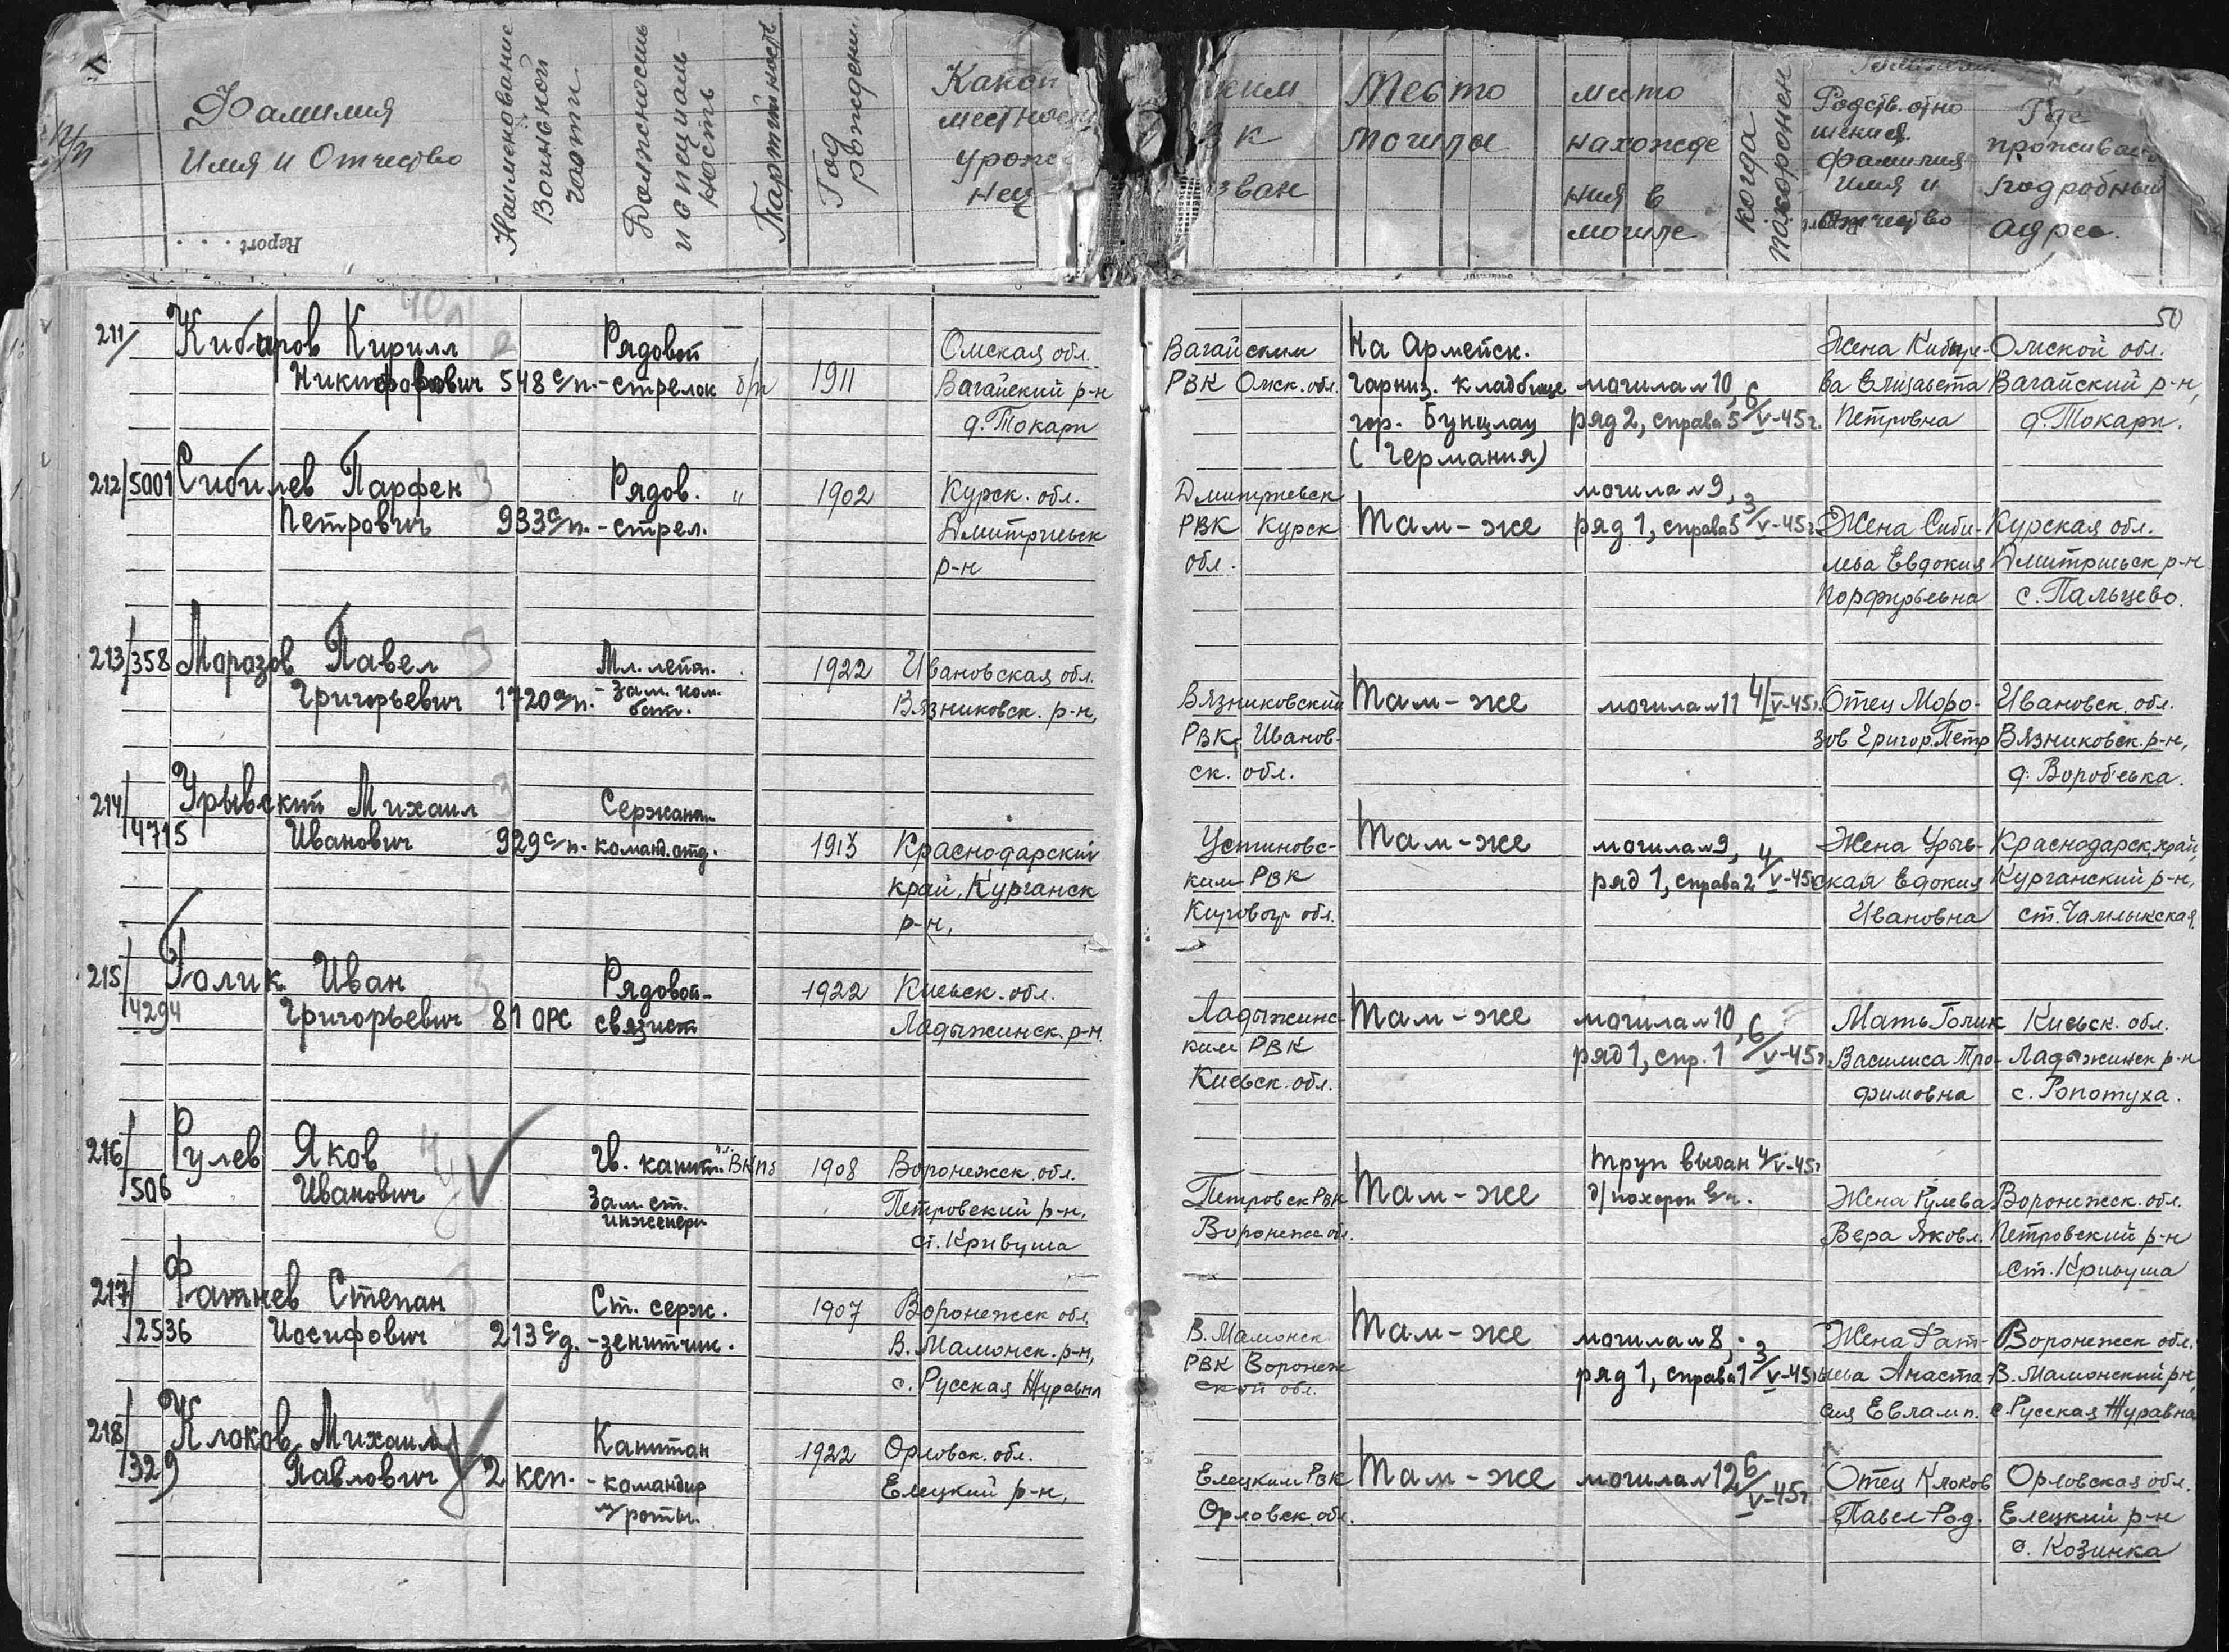 №
п/п
Фамилия
Имя и Отчество
Report
Наименование
Воинской
части
Должность
и специаль
ность
Партийность
Год
рождения
Какой
местнос
уроже
нец
ким
ВК
зван
Место
могилы
место
нахожде
ния в
могиле
когда
похоронен
Родств. отно
шения
фамилия
имя и
отчество
Где
проживает
подробный
адрес.
50
40л
211/ Кибиров Кирилл Рядовой Омская обл.
Никифорович 548 с/п. - стрелок б/п 1911 Вагайский р-н
д. Токари
Вагайским На Армейск. Жена Кибире- Омской обл.
РВК Омск. обл. гарниз. кладбище могила № 10, 6/V-45г. ва Елизавета Вагайский р-н,
гор. Бунцлау ряд 2, справа 5 Петровна д. Токари.
(Германия)
212/5001 Сибилев Парфен Рядов. " 1902 Курск. обл.
Петрович 933 с/п. - стрел. Дмитриевск
р-н
Дмитриевск могила № 9,
РВК Курск Там-же ряд 1, справа 5 3/V-45г. Жена Сиби- Курская обл.
обл. лева Евдокия Дмитриевск р-н
Порфирьевна с. Пальцево.
213/358 Морозов Павел Мл. лейт. 1922 Ивановская обл.
Григорьевич 1720 а/п. - зам. ком. Вязниковск. р-н,
бат.
Вязниковский Там-же могила № 11 4/V-45г. Отец Моро- Ивановск. обл.
РВК, Иванов- зов Григор. Петр Вязниковск. р-н,
ск. обл. д. Воробьевка.
214/ Урывский Михаил Сержант
4715 Иванович 929 с/п. команд. отд. 1913 Краснодарский
край, Курганск
р-н,
Устиновс- Там-же могила № 9, Жена Урыв- Краснодарск. край,
ким РВК ряд 1, справа 2 4/V-45г. ская Едокия Курганский р-н,
Кировогр обл. Ивановна ст. Чамлыкская
215/ Голик Иван Рядовой- 1922 Киевск. обл.
4294 Григорьевич 81 ОРС связист Ладыжинск. р-н.
Ладыжинс- Там-же могила № 10, Мать Голик Киевск. обл.
ким РВК ряд 1, спр. 1 6/V-45г. Василиса Тро- Ладыжинск р-н
Киевск. обл. фимовна с. Ропотуха.
216/ Рулев Яков Гв. капит. чл. ВКПб 1908 Воронежск. обл.
506 Иванович Зам. ст. Петровский р-н,
инженера ст. Кривуша
Труп выдан 4/V-45г
Петровск РВК Там-же д/похорон в/ч. Жена Рулева Воронежск. обл.
Воронеж обл. Вера Яковл. Петровский р-н
ст. Кривуша
217/ Фатнев Степан Ст. серж. 1907 Воронежск обл.
2536 Иосифович 213 с/д. - зенитчик. В. Мамонск. р-н,
с. Русская Журавл
В. Мамонск Там-же могила № 8, Жена Фат- Воронежск обл.
РВК Воронеж ряд 1, справа 1 3/V-45г нева Анаста- В. Мамонский р-н,
ской обл. сия Евламп. с. Русская Журавка
218/ Клоков Михаил Капитан 1922 Орловск. обл.
329 Павлович 2 ксп. - командир Елецкий р-н,
роты.
Елецким РВК Там-же могила № 12 6/V-45г. Отец Клоков Орловская обл.
Орловск. обл. Павел Род. Елецкий р-н
с. Козинка